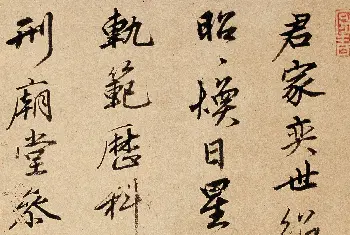 君家奕世
昭〻煥日星
軌範歷科
刑廟堂